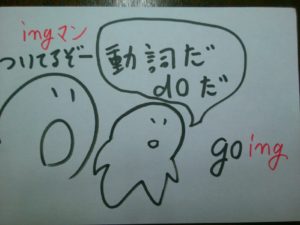 ingマン
ついてるぞー
動詞だ
doだ
going